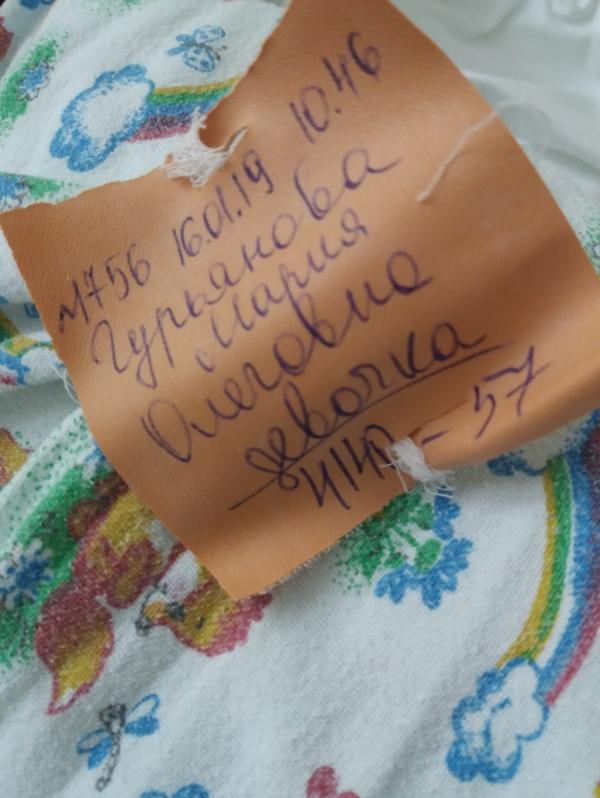 №1756 16.01.19 10.46
Гурьянова
Мария
Олеговна
девочка
4140-57